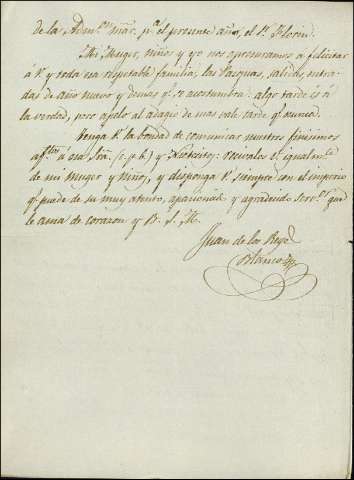 de las Adm.es mar. p.a el presente año, el S.r Florin.
Mi Muger, niños y yo nos apresuramos á felicitar
á V. y toda esa respetable familia, las Pascuas, salidas, entra-
das de año nuevo y demas q.e se acostumbra: algo tarde es á
la verdad, pero apelo al adagio de mas vale tarde q.e nunca.
Tenga V. la bondad de comunicar nuestros finisimos
af.tos á esa Sra. (c. p. b.) y recivalos el igualm.te
de mi Muger y Niños, y disponga V. siempre con el imperio
q.e puede de su muy atento, apasionad. y agradecido serv.r que
le ama de corazon y B. S. M.
Juan de los Reyes
Blanco